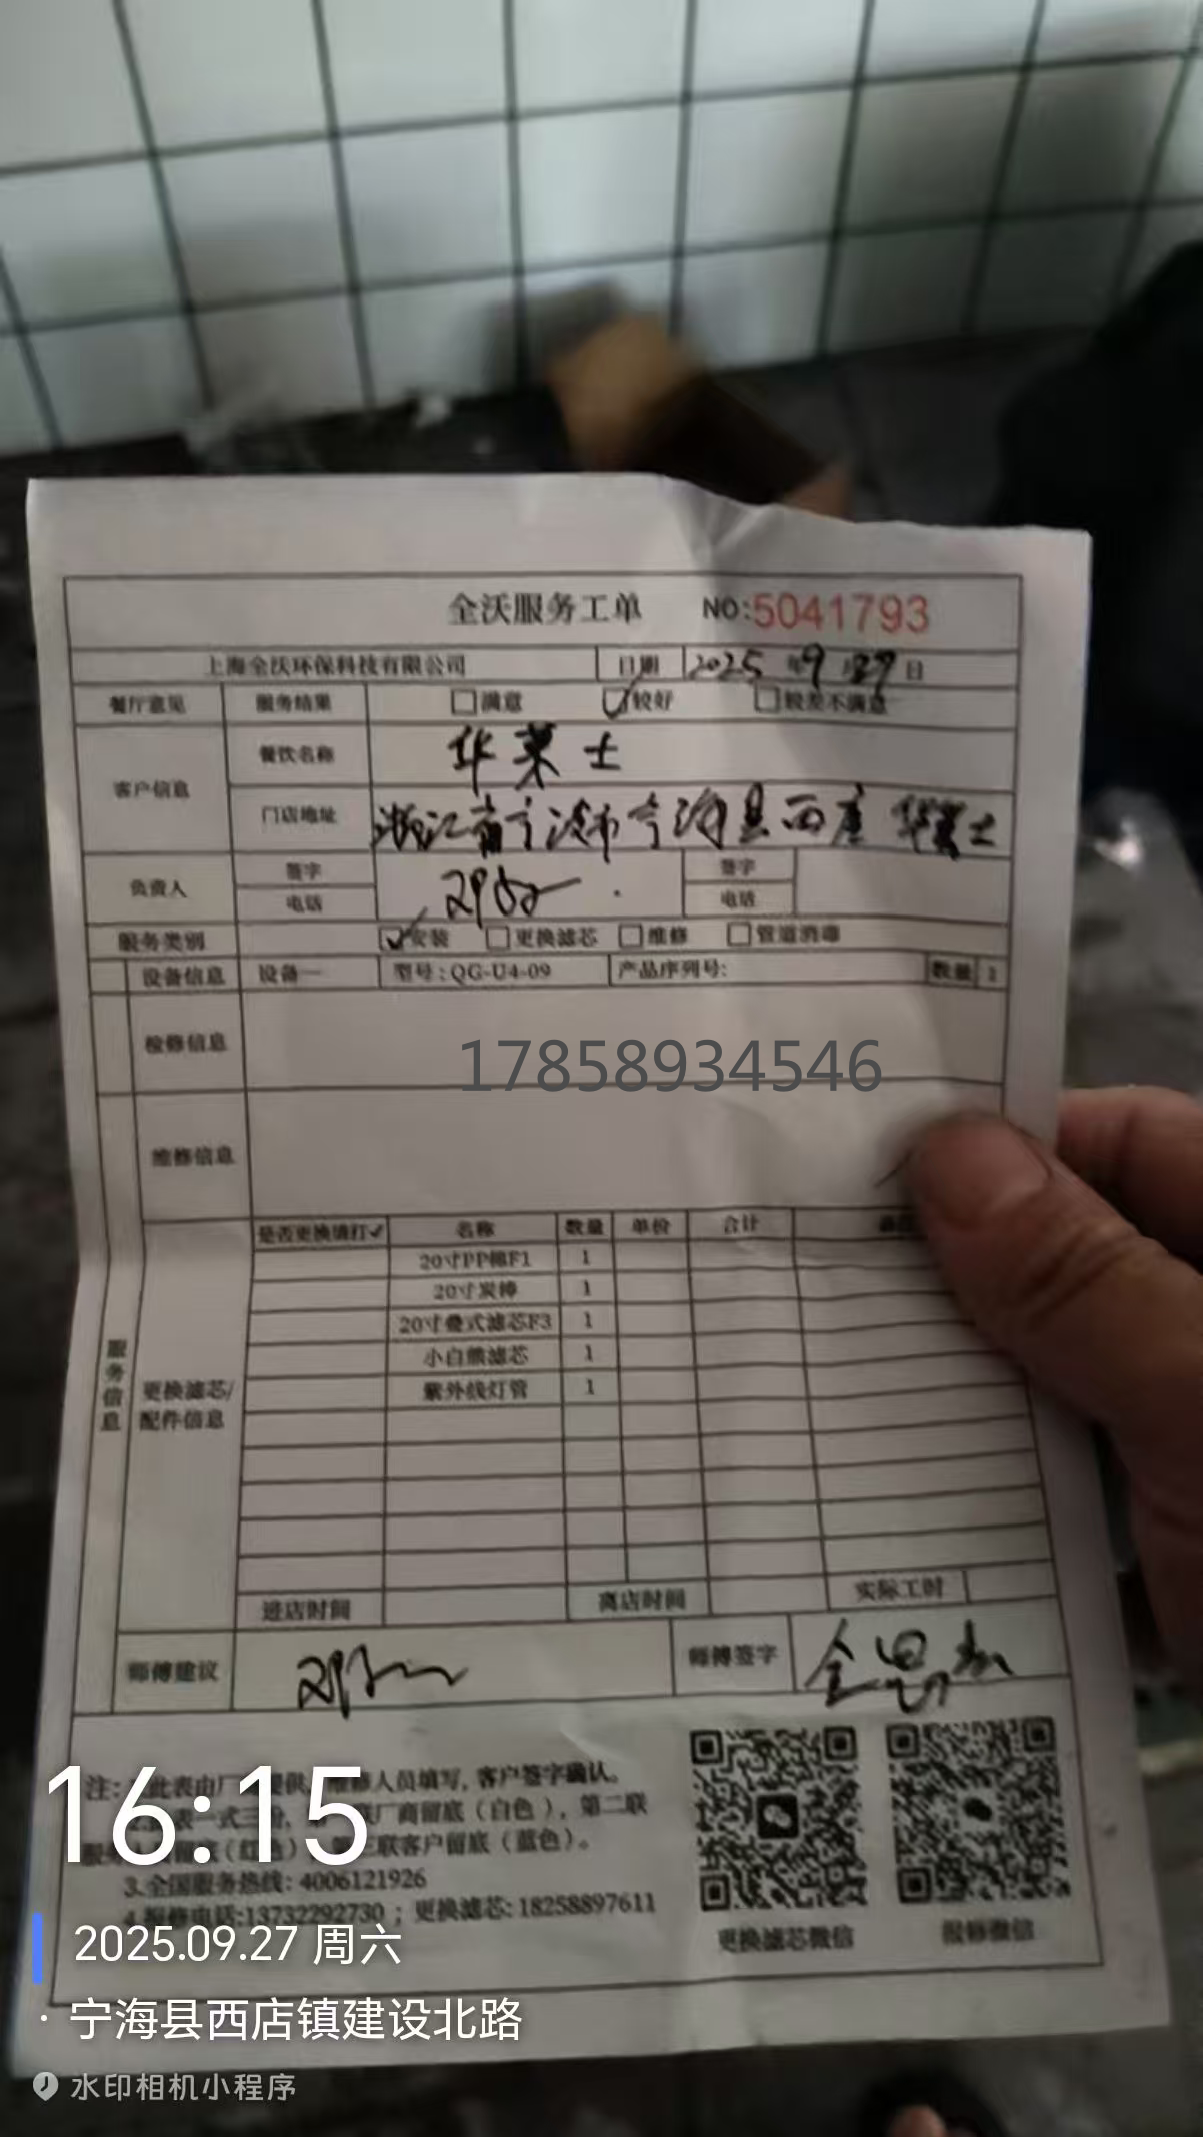 全沃服务工单 NO:5041793
上海全沃环保科技有限公司 日期 2025年9月27日
餐厅意见 服务结果 满意 较好 较差不满意
客户信息 餐饮名称 华莱士
门店地址 浙江省宁波市宁海县西店华莱士
负责人 签字 签字
电话 电话
服务类别 安装 更换滤芯 维修 管道消毒
设备信息 设备一 型号:QG-U4-09 产品序列号: 数量 1
检修信息
17858934546
维修信息
是否更换请打✓ 名称 数量 单价 合计
20寸PP棉F1 1
20寸炭棒 1
20寸叠式滤芯F3 1
小白熊滤芯 1
紫外线灯管 1
服务信息
更换滤芯/
配件信息
进店时间 离店时间 实际工时
师傅建议 师傅签字
注: 此表由厂 提供, 维修人员填写, 客户签字确认。
表一式三份, 厂商留底（白色）, 第二联
联客户留底（蓝色）。
3.全国服务热线: 4006121926
4.报修电话:13732292730 ; 更换滤芯: 18258897611
更换滤芯微信 报修微信
16:15
2025.09.27 周六
· 宁海县西店镇建设北路
水印相机小程序